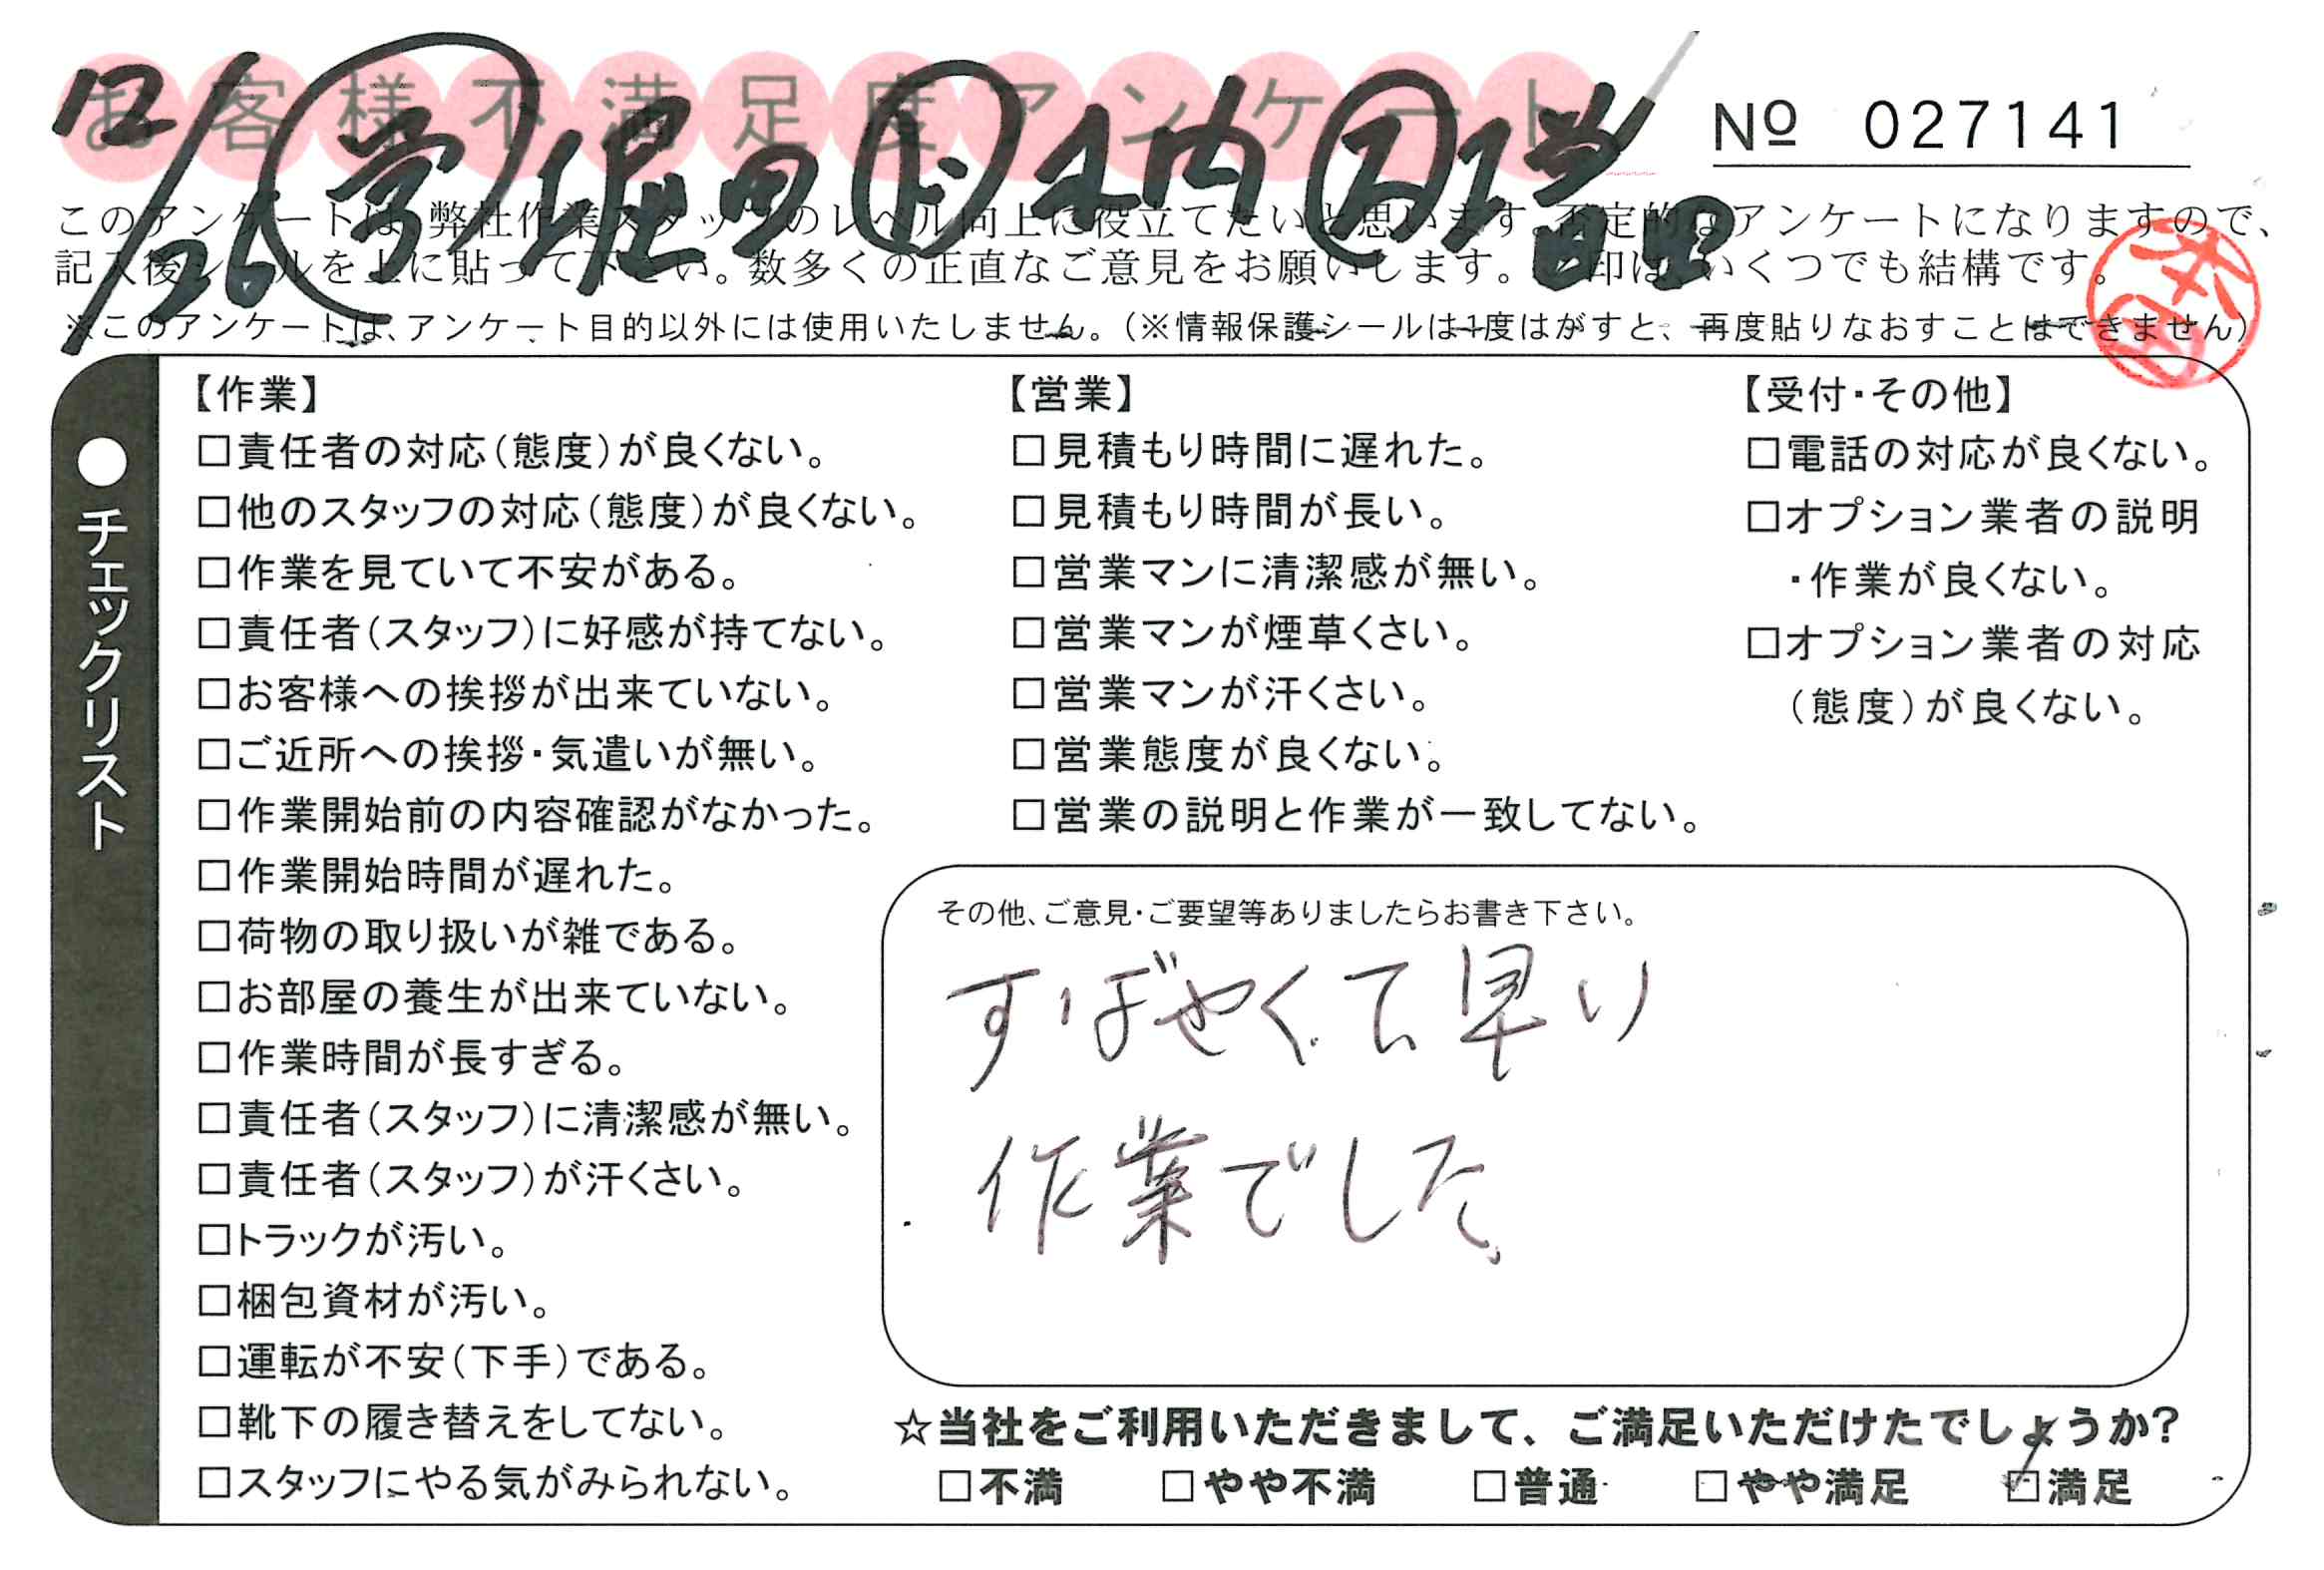 お客様不満足度アンケート
№ 027141
12/26 堀田 ド 木内 増田
このアンケートは、弊社作業スタッフのレベル向上に役立てたいと思います。否定的なアンケートになりますので、
記入後シールを上に貼って下さい。数多くの正直なご意見をお願いします。レ印は、いくつでも結構です。
※このアンケートは、アンケート目的以外には使用いたしません。（※情報保護シールは1度はがすと、再度貼りなおすことはできません）
●チェックリスト
【作業】
□責任者の対応（態度）が良くない。
□他のスタッフの対応（態度）が良くない。
□作業を見ていて不安がある。
□責任者（スタッフ）に好感が持てない。
□お客様への挨拶が出来ていない。
□ご近所への挨拶・気遣いが無い。
□作業開始前の内容確認がなかった。
□作業開始時間が遅れた。
□荷物の取り扱いが雑である。
□お部屋の養生が出来ていない。
□作業時間が長すぎる。
□責任者（スタッフ）に清潔感が無い。
□責任者（スタッフ）が汗くさい。
□トラックが汚い。
□梱包資材が汚い。
□運転が不安（下手）である。
□靴下の履き替えをしてない。
□スタッフにやる気がみられない。
【営業】
□見積もり時間に遅れた。
□見積もり時間が長い。
□営業マンに清潔感が無い。
□営業マンが煙草くさい。
□営業マンが汗くさい。
□営業態度が良くない。
□営業の説明と作業が一致してない。
【受付・その他】
□電話の対応が良くない。
□オプション業者の説明
・作業が良くない。
□オプション業者の対応
（態度）が良くない。
その他、ご意見・ご要望等ありましたらお書き下さい。
すばやくて早い
作業でした
☆当社をご利用いただきまして、ご満足いただけたでしょうか？
□不満 □やや不満 □普通 □やや満足 ☑満足